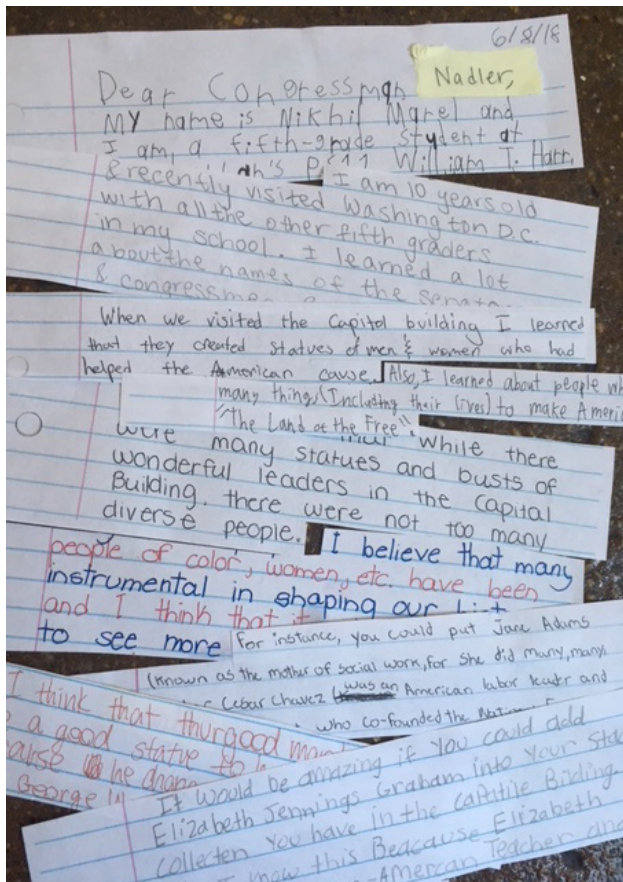 6/8/18
Dear Congressman Nadler,
My name is Nikhil and
I am, a fifth-grade student at
William T. Harr
& recently visited I am 10 years old
with all the other Washington D.C.
in my school. fifth graders
about the names I learned a lot
& congressme of the senato
When we visited the Capitol building I learned
that they created statues of men & women who had
helped the American cause. Also, I learned about people wh
many things (Including their lives) to make Ameri
"The Land of the Free".
were many statues and busts of While there
wonderful leaders in the Capital
Building. there were not too many
diverse people. I believe that many
people of color, women, etc. have been
instrumental in shaping our
and I think that
to see more
For instance, you could put Jane Adams
(Known as the mother of social work, for she did many, many
Cebar Chavez was an American labor leader and
who co-founded the
I think that thurgood
a good statue to
he
George
It would be amazing if you could add
Elizabeth Jennings Graham into your
collecten you have in the capitile Bilding.
know this Beacause Elizabeth
Teacher and